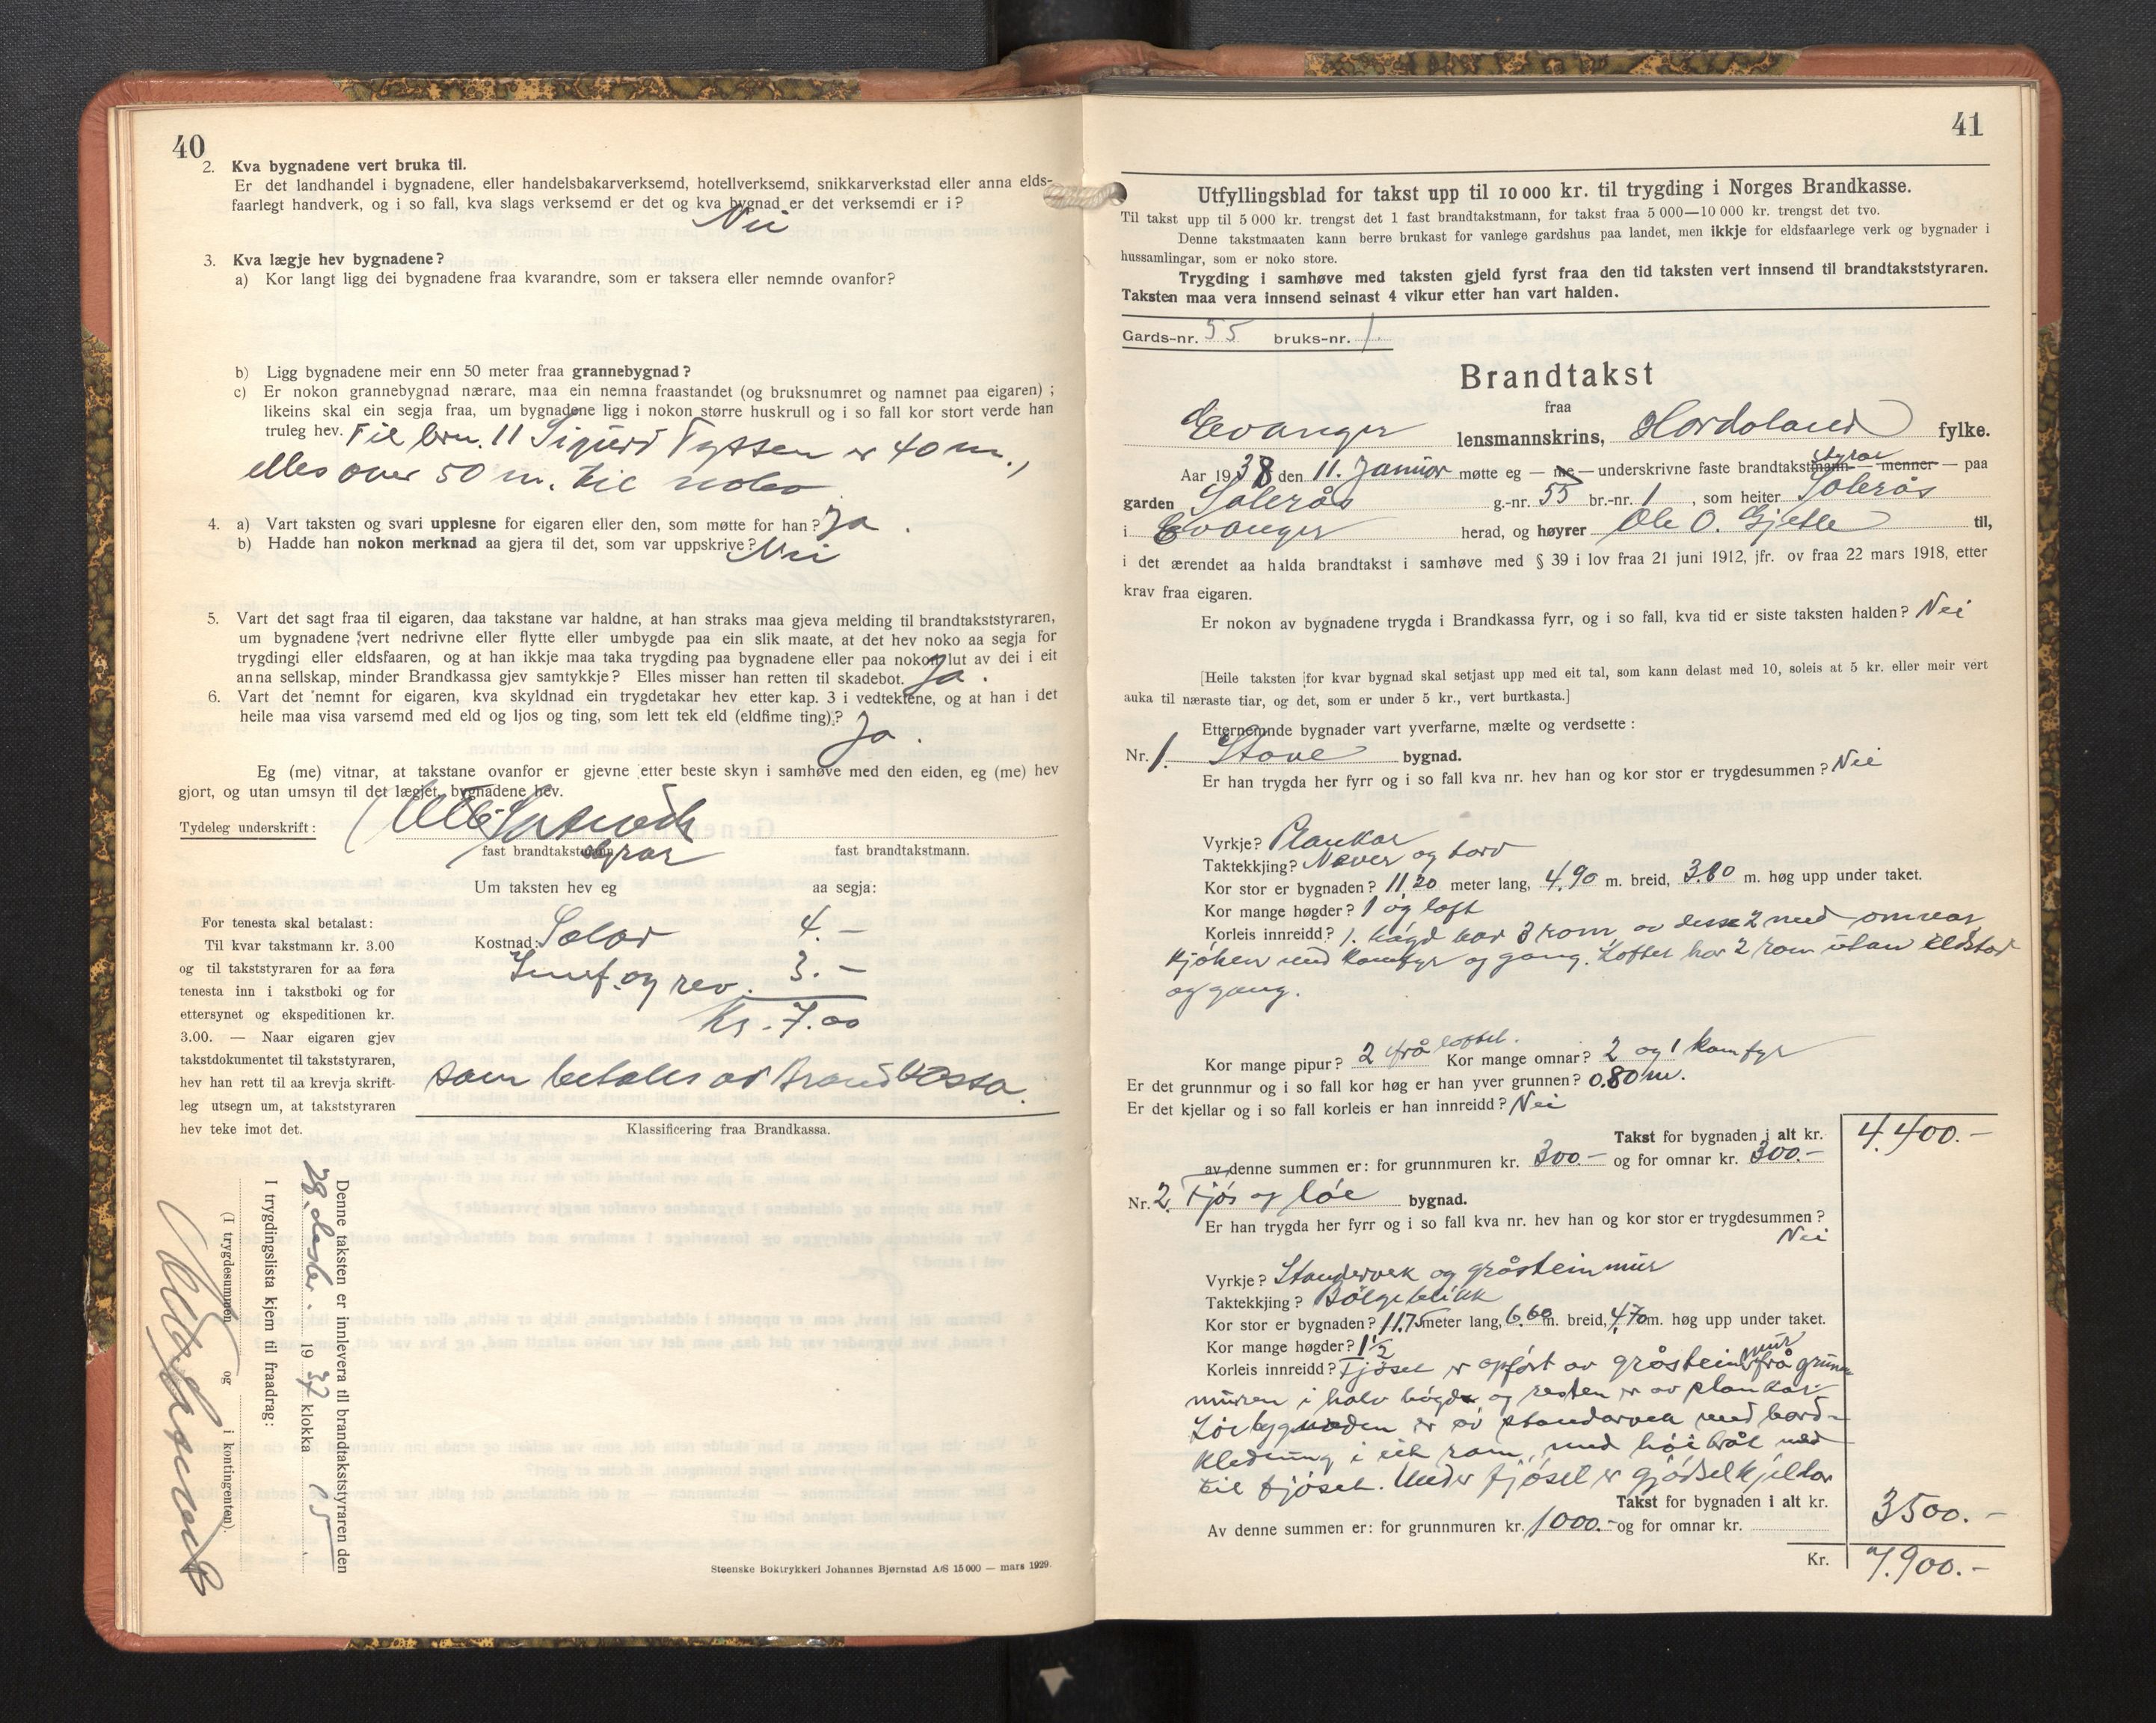 40
2. Kva bygnadene vert bruka til.
Er det landhandel i bygnadene, eller handelsbakarverksemd, hotellverksemd, snikkarverkstad eller anna elds-
faarlegt handverk, og i so fall, kva slags verksemd er det og kva bygnad er det verksemdi er i?
Nei
3. Kva lægje hev bygnadene?
a) Kor langt ligg dei bygnadene fraa kvarandre, som er taksera eller nemnde ovanfor?
b) Ligg bygnadene meir enn 50 meter fraa grannebygnad?
c) Er nokon grannebygnad nærare, maa ein nemna fraastandet (og bruksnumret og namnet paa eigaren) ;
likeins skal ein segja fraa, um bygnadene ligg i nokon større huskrull og i so fall kor stort verde han
truleg hev. Til brn. 11 Sigurd Tyssen er 40 m.,
elles over 50 m. til nabo
4. a) Vart taksten og svari upplesne for eigaren eller den, som møtte for han? Ja.
b) Hadde han nokon merknad aa gjera til det, som var uppskrive? Nei
5. Vart det sagt fraa til eigaren, daa takstane var haldne, at han straks maa gjeva melding til brandtakststyraren,
um bygnadene vert nedrivne eller flytte eller umbygde paa ein slik maate, at det hev noko aa segja for
trygdingi eller eldsfaaren, og at han ikkje maa taka trygding paa bygnadene eller paa nokon lut av dei i eit
anna sellskap, minder Brandkassa gjev samtykkje? Elles misser han retten til skadebot. Ja.
6. Vart det nemnt for eigaren, kva skyldnad ein trygdetakar hev etter kap. 3 i vedtektene, og at han i det
heile maa visa varsemd med eld og ljos og ting, som lett tek eld (eldfime ting)?
Ja.
Eg (me) vitnar, at takstane ovanfor er gjevne etter beste skyn i samhøve med den eiden, eg (me) hev
gjort, og utan umsyn til det lægjet, bygnadene hev.
Tydeleg underskrift:
fast brandtakstmann styrar fast brandtakstmann.
Um taksten hev eg aa segja:
For tenesta skal betalast:
Til kvar takstmann kr. 3.00
og til takststyraren for aa føra
tenesta inn i takstboki og for
ettersynet og ekspeditionen kr.
3.00. — Naar eigaren gjev
takstdokumentet til takststyraren,
hev han rett til aa krevja skrift-
leg utsegn um, at takststyraren
hev teke imot det.
Kostnad: Salar 4.—
Innf. og rev. 3.—
Kr. 7.00
som betales av Brandkassa.
Klassificering fraa Brandkassa.
Denne taksten er innlevera til brandtakststyraren den
28. desbr. 1937 klokka 15
I trygdingslista kjem til fraadrag:
(I trygdesummen og i kontingenten).
Steenske Boktrykkeri Johannes Bjørnstad A/S 15 000 — mars 1929.
41
Utfyllingsblad for takst upp til 10 000 kr. til trygding i Norges Brandkasse.
Til takst upp til 5 000 kr. trengst det 1 fast brandtakstmann, for takst fraa 5 000—10 000 kr. trengst det tvo.
Denne takstmaaten kann berre brukast for vanlege gardshus paa landet, men ikkje for eldsfaarlege verk og bygnader i
hussamlingar, som er noko store.
Trygding i samhøve med taksten gjeld fyrst fraa den tid taksten vert innsend til brandtakststyraren.
Taksten maa vera innsend seinast 4 vikur etter han vart halden.
Gards-nr. 55 bruks-nr. 1.
Brandtakst
fraa
Evanger lensmannskrins, Hordaland fylke.
Aar 1938 den 11. januar møtte eg — me — underskrivne faste brandtakstmann styrar — menner — paa
garden Solerås g.-nr. 55 br.-nr. 1, som heiter Solerås
i Evanger herad, og høyrer Ole O. Gjelle til,
i det ærendet aa halda brandtakst i samhøve med § 39 i lov fraa 21 juni 1912, jfr. ov fraa 22 mars 1918, etter
krav fraa eigaren.
Er nokon av bygnadene trygda i Brandkassa fyrr, og i so fall, kva tid er siste taksten halden? Nei
[Heile taksten for kvar bygnad skal setjast upp med eit tal, som kann delast med 10, soleis at 5 kr. eller meir vert
auka til næraste tiar, og det, som er under 5 kr., vert burtkasta.]
Etternemnde bygnader vart yverfarne, mælte og verdsette:
Nr. 1. Stove bygnad.
Er han trygda her fyrr og i so fall kva nr. hev han og kor stor er trygdesummen? Nei
Vyrkje? Plankar
Taktekkjing? Never og torv
Kor stor er bygnaden? 11,20 meter lang, 4.90 m. breid, 3.80 m. høg upp under taket.
Kor mange høgder? 1 og loft
Korleis innreidd? 1. høgd har 3 rom, av desse 2 med omnar,
kjøken med komfyr og gang. Loftet har 2 rom utan eldstad
og gang.
Kor mange pipur? 2 frå loftet. Kor mange omnar? 2 og 1 komfyr
Er det grunnmur og i so fall kor høg er han yver grunnen? 0.80 m.
Er det kjellar og i so fall korleis er han innreidd? Nei
Takst for bygnaden i alt kr. 4.400.—
av denne summen er: for grunnmuren kr. 300.— og for omnar kr. 300.—
Nr. 2. Fjøs og løe bygnad.
Er han trygda her fyrr og i so fall kva nr. hev han og kor stor er trygdesummen?
Nei
Vyrkje? Standerverk og gråsteinmur
Taktekkjing? Bølgeblikk
Kor stor er bygnaden? 11.75 meter lang, 6.60 m. breid, 4,70 m. høg upp under taket.
Kor mange høgder? 1 1/2
Korleis innreidd? Fjøset er opført av gråsteinmur frå grunn-
muren i halv høgde og resten er av plankar.
Løebygnaden er av standarverk med bord-
kledning i eit rom, med høibrot ned
til fjøset. Under fjøset er gjødselkjellar
Takst for bygnaden i alt kr. 3500.—
Av denne summen er: for grunnmuren kr. 1000.— og for omnar kr.
Kr. 7.900.—